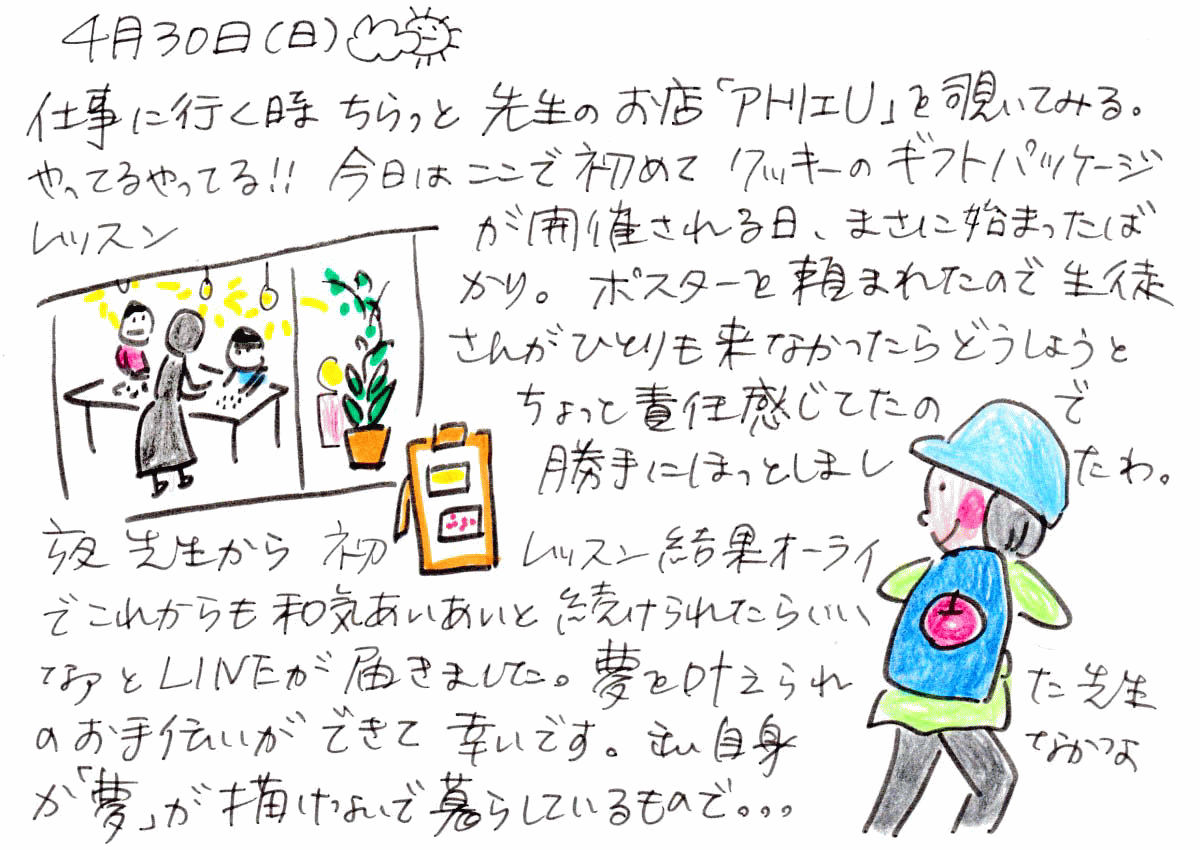 4月30日(日)
仕事に行く時 ちらっと 先生の お店「アトリエU」を覗いてみる。
やってるやってる!! 今日は ここで 初めて クッキーの ギフトパッケージ
レッスン が開催される日、まさに始まったば
かり。 ポスターを頼まれたので 生徒
さんがひとりも来なかったらどうしようと
ちょっと責任感じてたの で
勝手にほっとしまし たわ。
夜 先生から 初 レッスン 結果オーライ
でこれからも 和気あいあいと 続けられたらいい
なァとLINEが届きました。 夢を叶えられ た先生
のお手伝いが できて 幸いです。 私自身 なかなか
が「夢」が 描けないで 暮らしているもので。。。